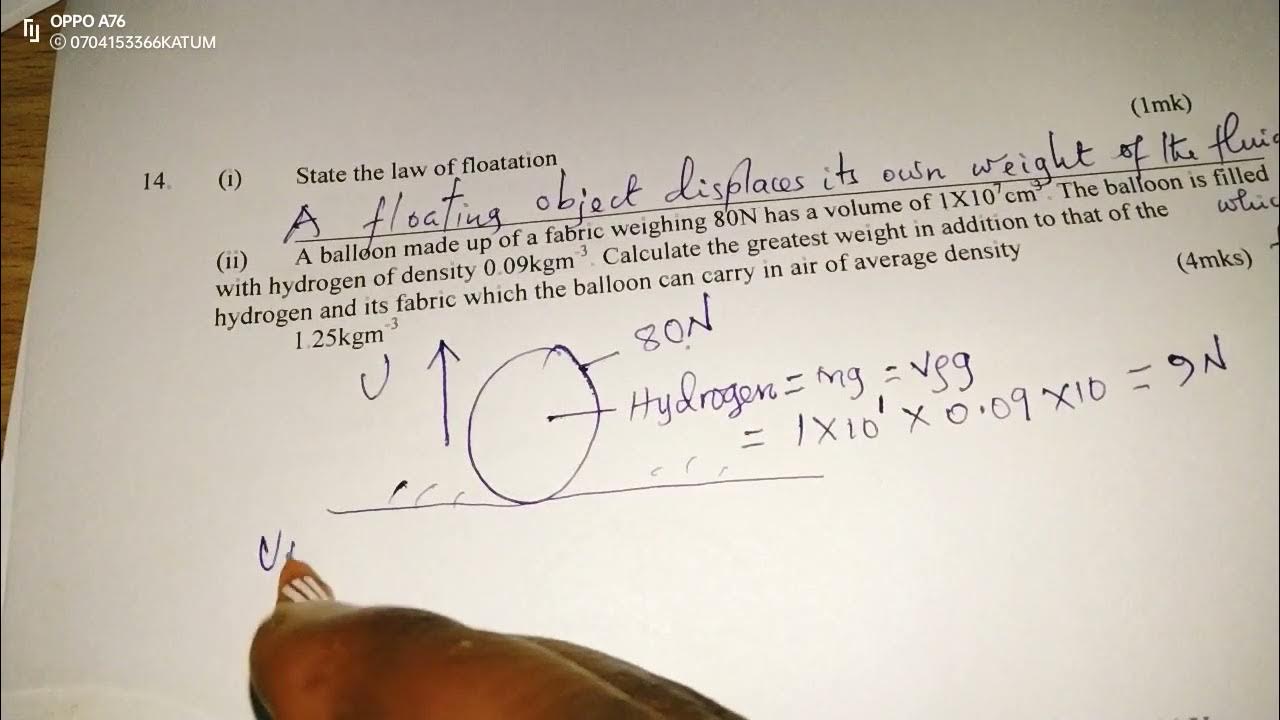 OPPO A76
© 0704153366KATUM
(1mk)
14. (i) State the law of floatation
A floating object displaces its own weight of the fluid
whic
(ii) A balloon made up of a fabric weighing 80N has a volume of 1X10⁷cm³. The balloon is filled
with hydrogen of density 0.09kgm⁻³. Calculate the greatest weight in addition to that of the
hydrogen and its fabric which the balloon can carry in air of average density
(4mks)
1.25kgm⁻³
U
80N
Hydrogen = mg = Vρg
= 1X10¹ X 0.09 X10 = 9N
U